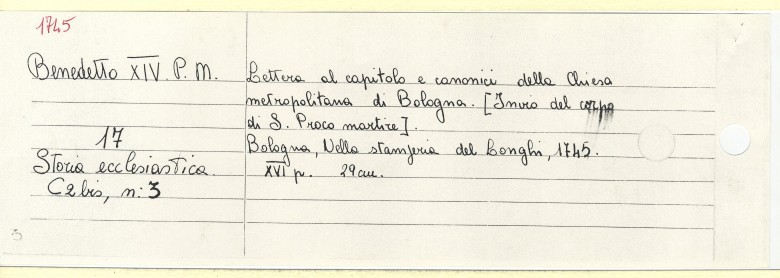 1745
Benedetto XIV P. M.
Lettera al capitolo e canonici della Chiesa
metropolitana di Bologna. [Invio del corpo
di S. Proco martire].
Bologna, Nella stamperia del Longhi, 1745.
XVI p. 29 cm.
17
Storia ecclesiastica
C2bis, n: 3
3